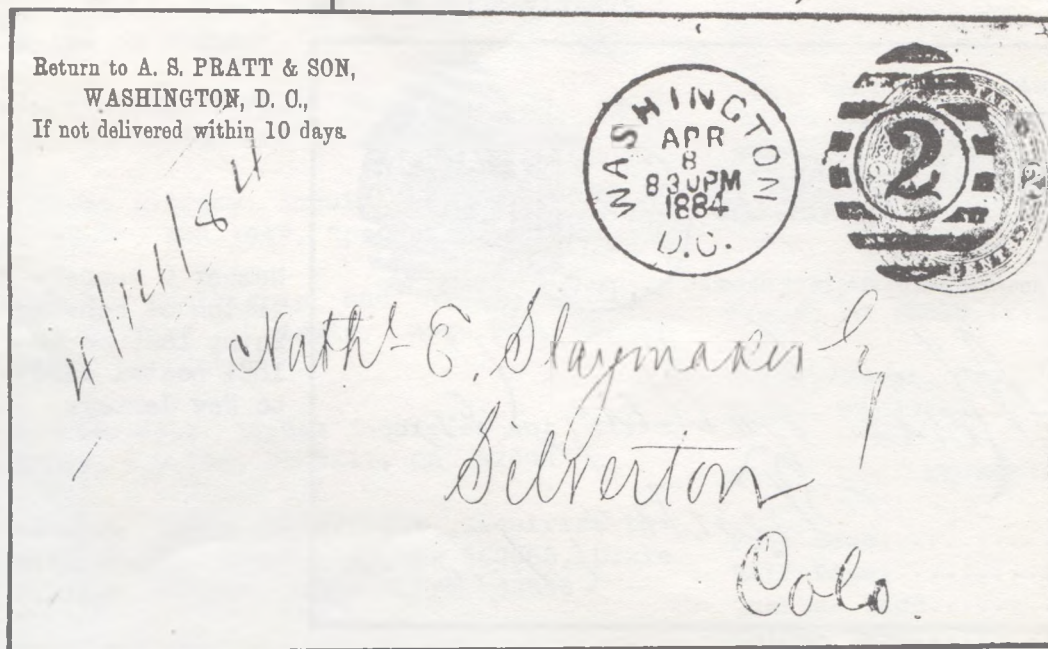 Return to A. S. PRATT & SON,
WASHINGTON, D. C.,
If not delivered within 10 days.
WASHINGTON
APR
8
830PM
1884
D.C.
2
CENTS
4/14/84
Nathl E. Slaymaker Esq
Silverton
Colo.